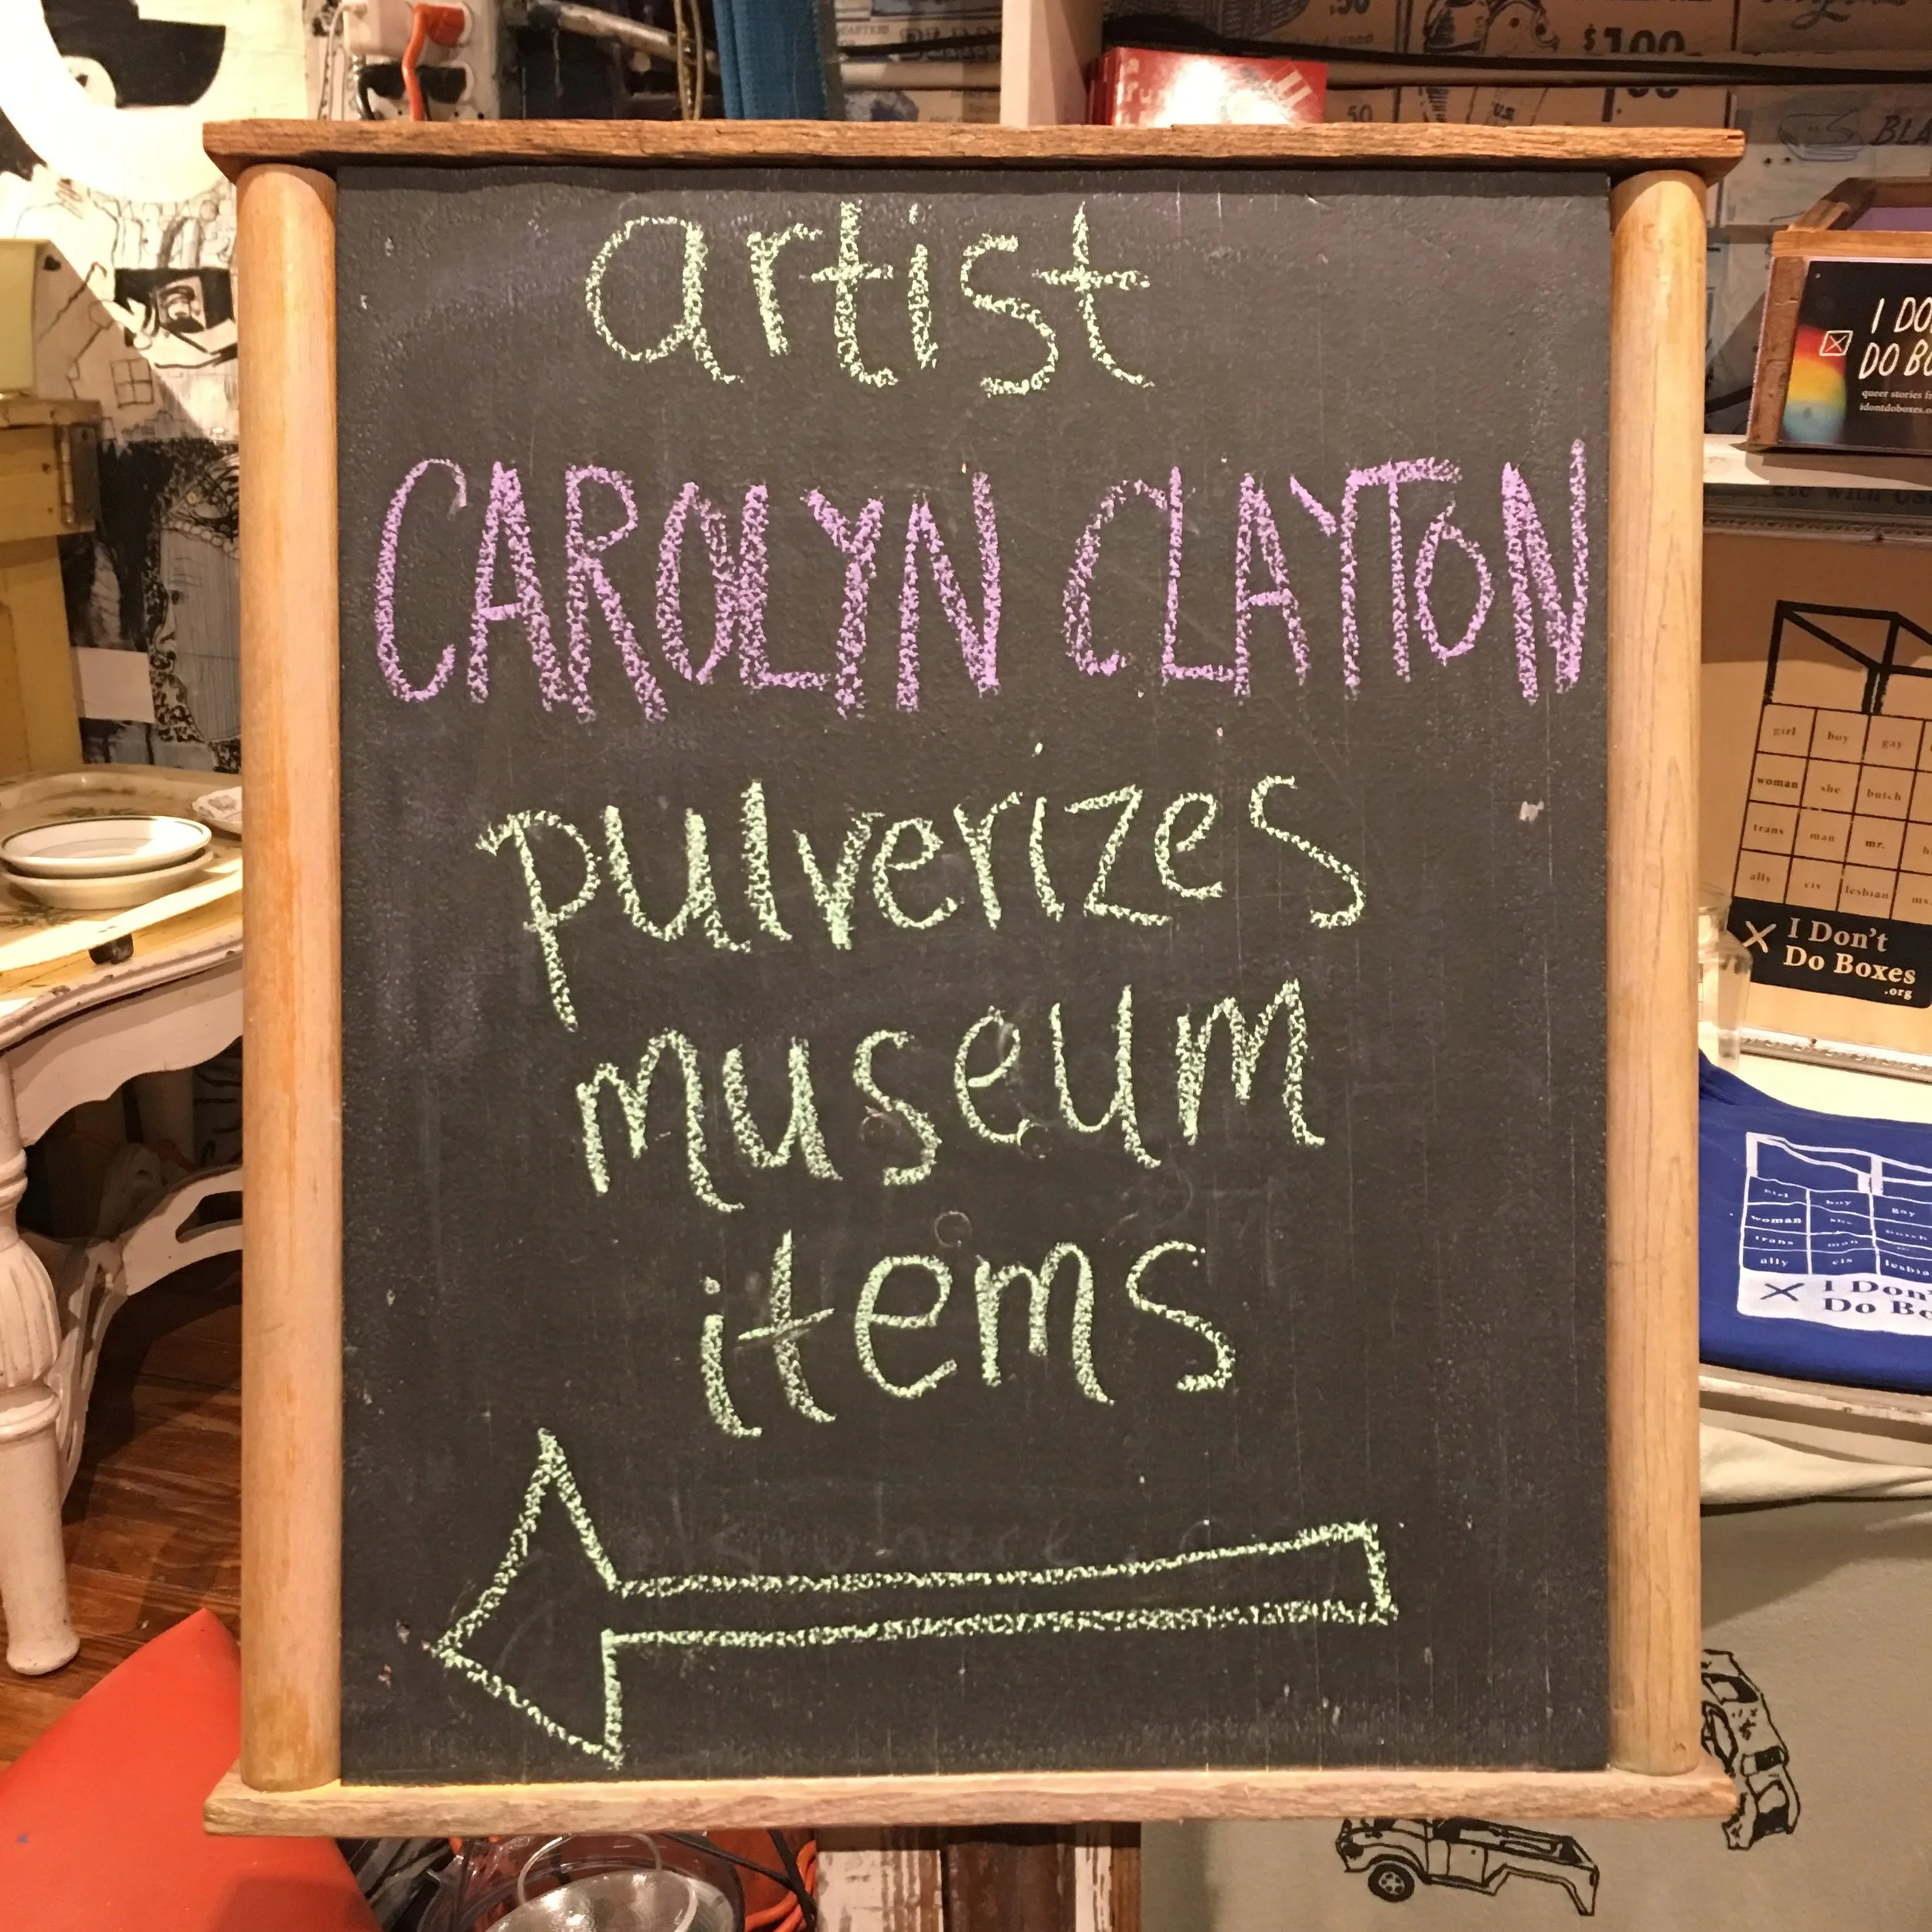 artist
CAROLYN CLAYTON
pulverizes
museum
items
.50
$1.00
50
I DO
DO BO
queer stories
idontdoboxes.o
girl boy gay
woman she butch
trans man mr.
ally cis lesbian ms.
I Don't
Do Boxes
.org
girl boy gay
woman
trans man
ally cis lesbia
I Don'
Do Bo